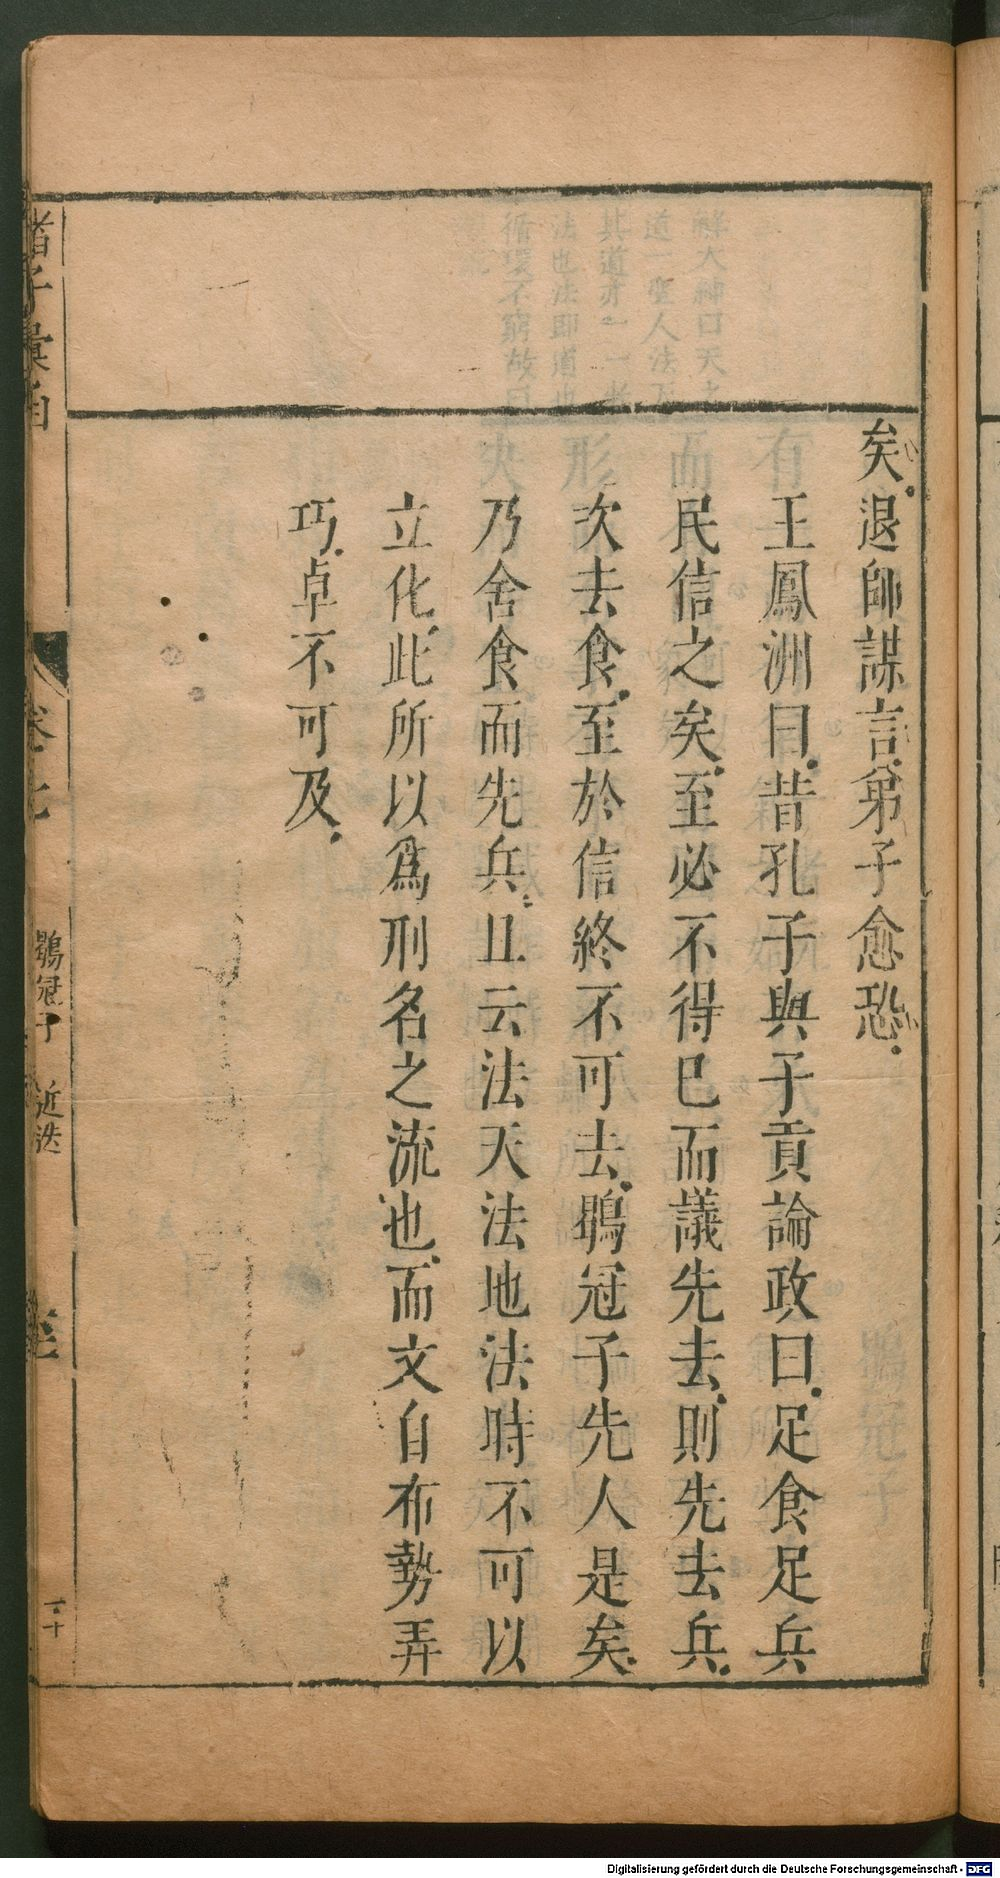 矣退師謀言弟子愈恐
王鳳洲曰昔孔子與子貢論政曰足食足兵
民信之矣至必不得已而議先去則先去兵
次去食至於信終不可去鶡冠子先人是矣
乃舍食而先兵且云法天法地法時不可以
立化此所以爲刑名之流也而文自布勢弄
巧卓不可及
諸子彙函
卷七
鶡冠子 近迭
三十
Digitalisierung gefördert durch die Deutsche Forschungsgemeinschaft - DFG